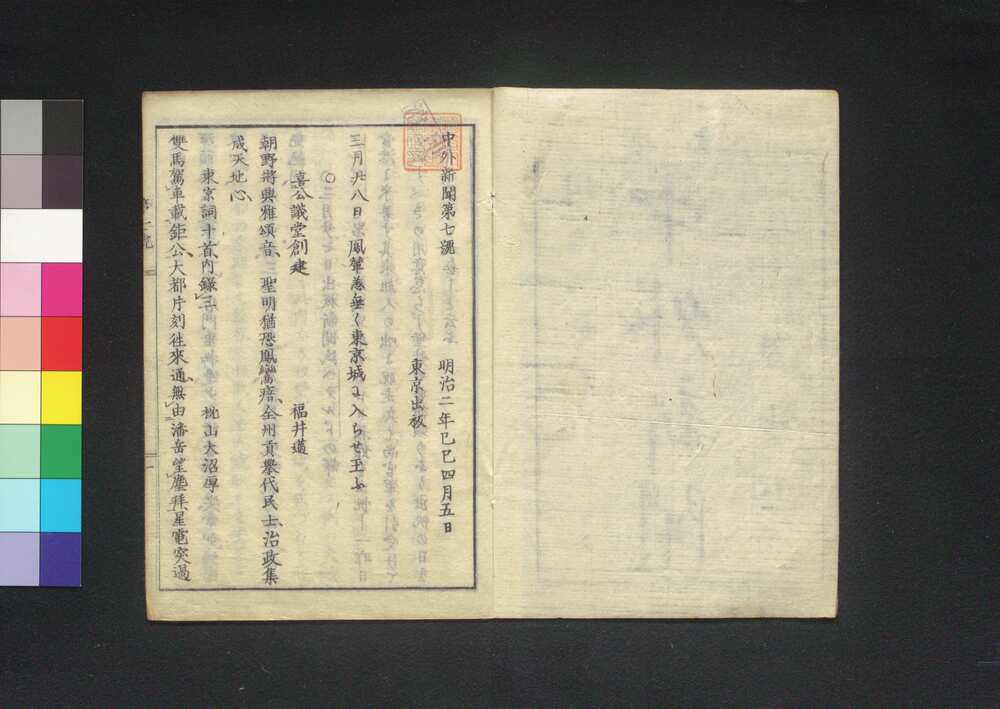 中外新聞第七號 明治二年己巳四月五日
東京出板
三月廿八日鳳輦恙無く東京城に入らせ玉ふ
○
喜公議堂創建 福井邁
朝野將興雅頌音三聖明猶恐鳳鸞瘖全州貢擧代民士治政集
成天地心
東京詞十首内錄三 枕山大沼厚
雙馬駕車載鉅公大都片刻往來通無由潘岳望塵拜星電突過